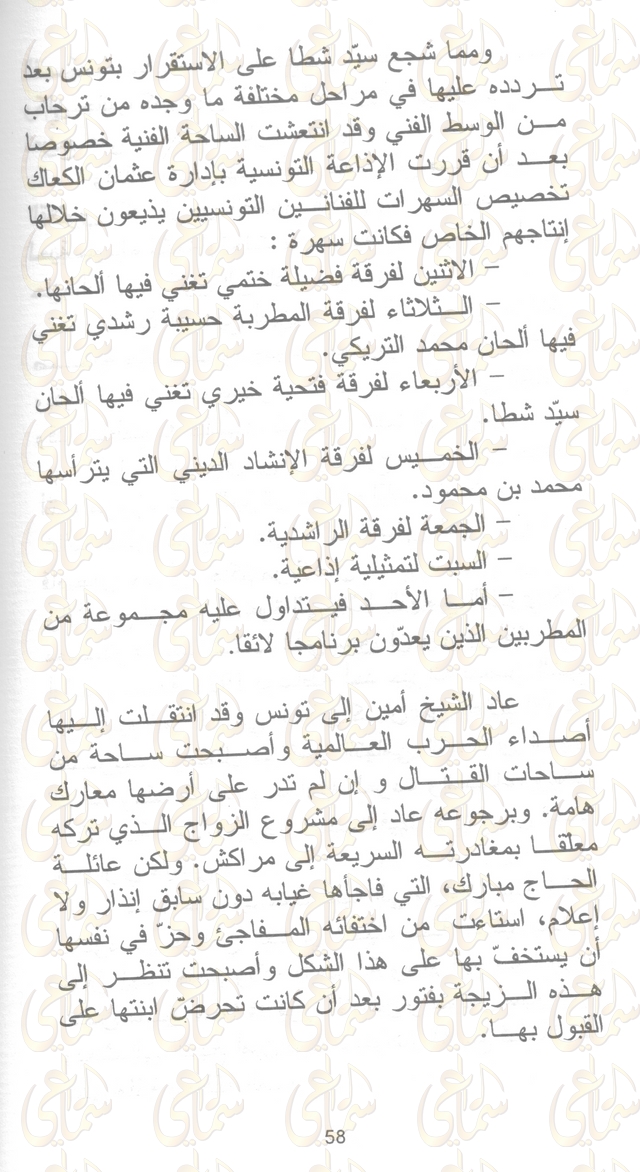 ومما شجع سيّد شطا على الاستقرار بتونس بعد
تردده عليها في مراحل مختلفة ما وجده من ترحاب
من الوسط الفني وقد انتعشت الساحة الفنية خصوصا
بعد أن قررت الإذاعة التونسية بإدارة عثمان الكعاك
تخصيص السهرات للفنانين التونسيين يذيعون خلالها
إنتاجهم الخاص فكانت سهرة :
– الاثنين لفرقة فضيلة ختمي تغني فيها ألحانها.
– الثلاثاء لفرقة المطربة حسيبة رشدي تغني
فيها ألحان محمد التريكي.
– الأربعاء لفرقة فتحية خيري تغني فيها ألحان
سيّد شطا.
– الخميس لفرقة الإنشاد الديني التي يترأسها
محمد بن محمود.
– الجمعة لفرقة الراشدية.
– السبت لتمثيلية إذاعية.
– أما الأحد فيتداول عليه مجموعة من
المطربين الذين يعدّون برنامجا لائقا.
عاد الشيخ أمين إلى تونس وقد انتقلت إليها
أصداء الحرب العالمية وأصبحت ساحة من
ساحات القتال و إن لم تدر على أرضها معارك
هامة. وبرجوعه عاد إلى مشروع الزواج الذي تركه
معلّقا بمغادرته السريعة إلى مراكش. ولكن عائلة
الحاج مبارك، التي فاجأها غيابه دون سابق إنذار ولا
إعلام، استاءت من اختفائه المفاجئ وحزّ في نفسها
أن يستخفّ بها على هذا الشكل وأصبحت تنظر إلى
هذه الزيجة بفتور بعد أن كانت تحرضّ ابنتها على
القبول بها.
58